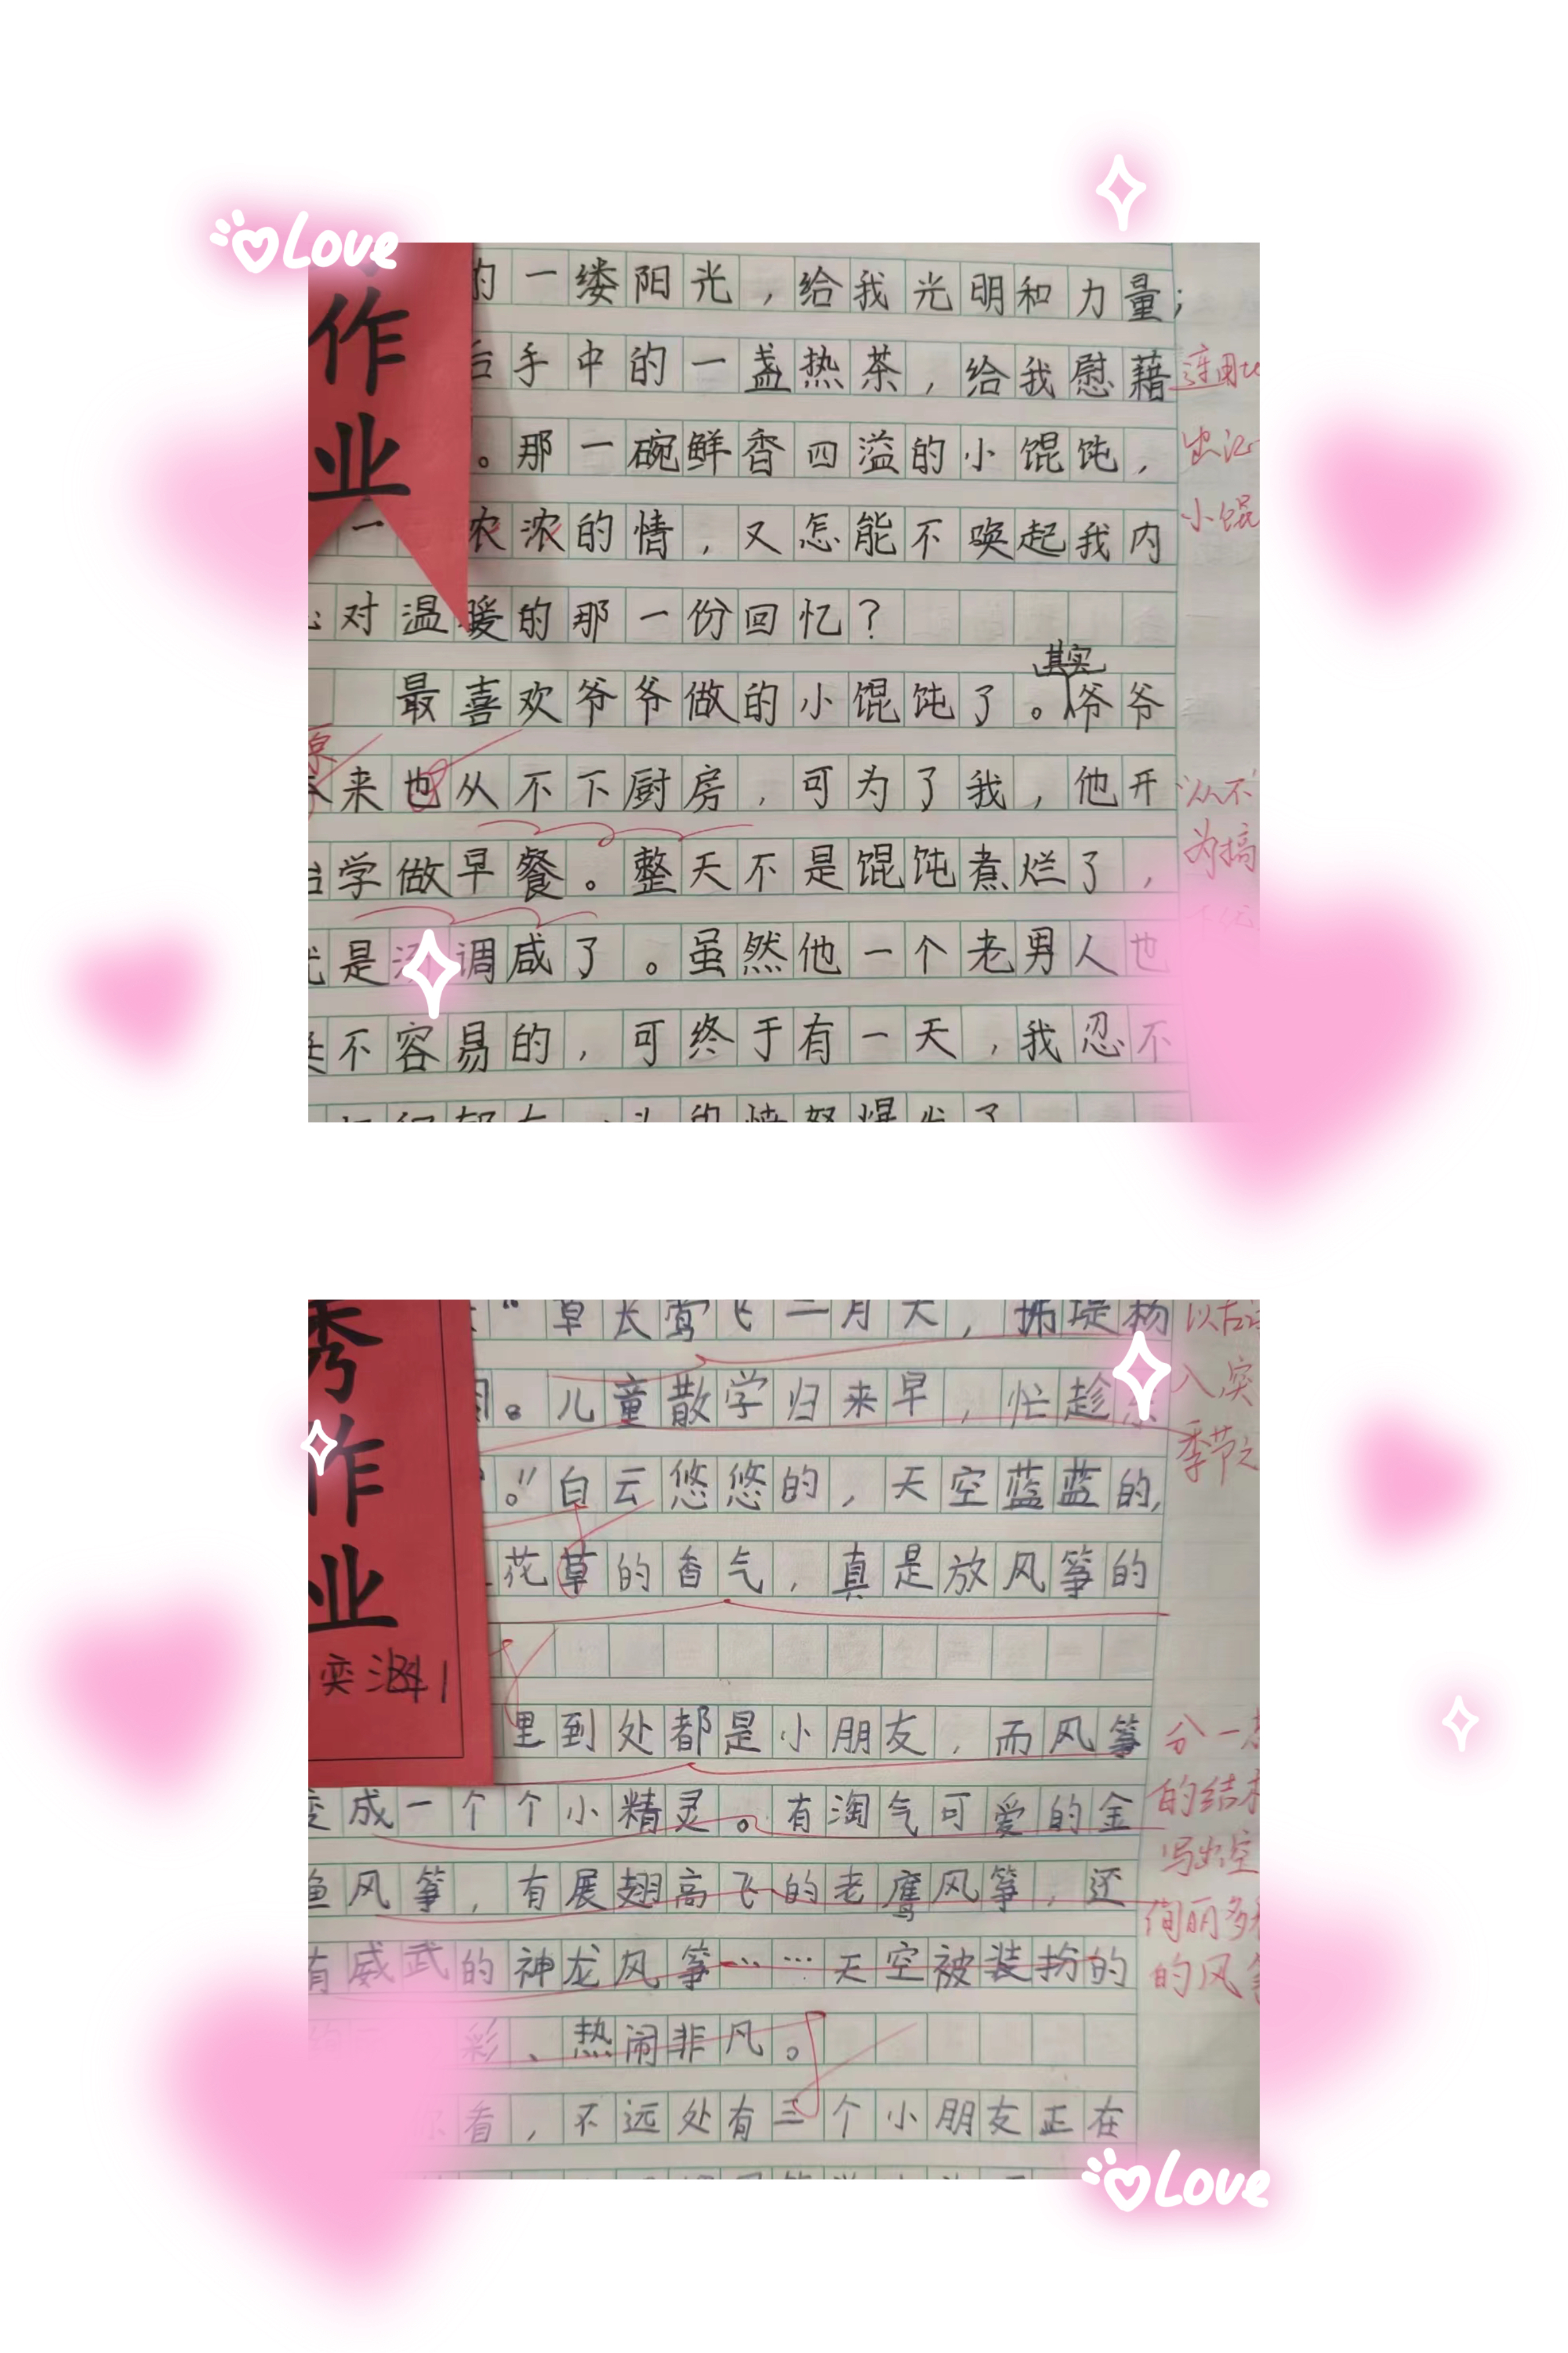 Love
作
业
的一缕阳光，给我光明和力量；
手中的一盏热茶，给我慰藉
。那一碗鲜香四溢的小馄饨，
一 浓浓的情，又怎能不唤起我内
对温暖的那一份回忆？
最喜欢爷爷做的小馄饨了。其实爷爷
来也从不下厨房，可为了我，他开
学做早餐。整天不是馄饨煮烂了，
是汤调咸了。虽然他一个老男人也
不容易的，可终于有一天，我忍不
小馄
从不
为搞
秀
作
业
"草长莺飞二月天，拂堤杨
。儿童散学归来早，忙趁
。"白云悠悠的，天空蓝蓝的，
花草的香气，真是放风筝的
里到处都是小朋友，而风筝
变成一个个小精灵。有淘气可爱的金
鱼风筝，有展翅高飞的老鹰风筝，还
有威武的神龙风筝……天空被装扮的
彩、热闹非凡。
看，不远处有三个小朋友正在
以古
入，突
季节
分一
的结
写出空
绚丽多
的风
Love